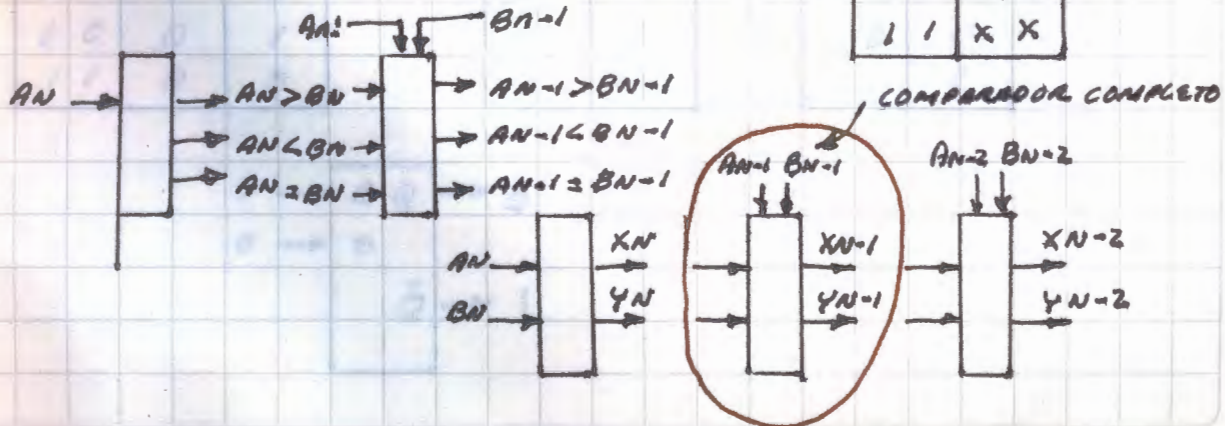 1 1 X X
An-1 Bn-1
AN AN>BN AN-1>BN-1
AN<BN AN-1<BN-1
AN=BN AN-1=BN-1
COMPARADOR COMPLETO
AN-1 BN-1 AN-2 BN-2
AN XN XN-1 XN-2
BN YN YN-1 YN-2